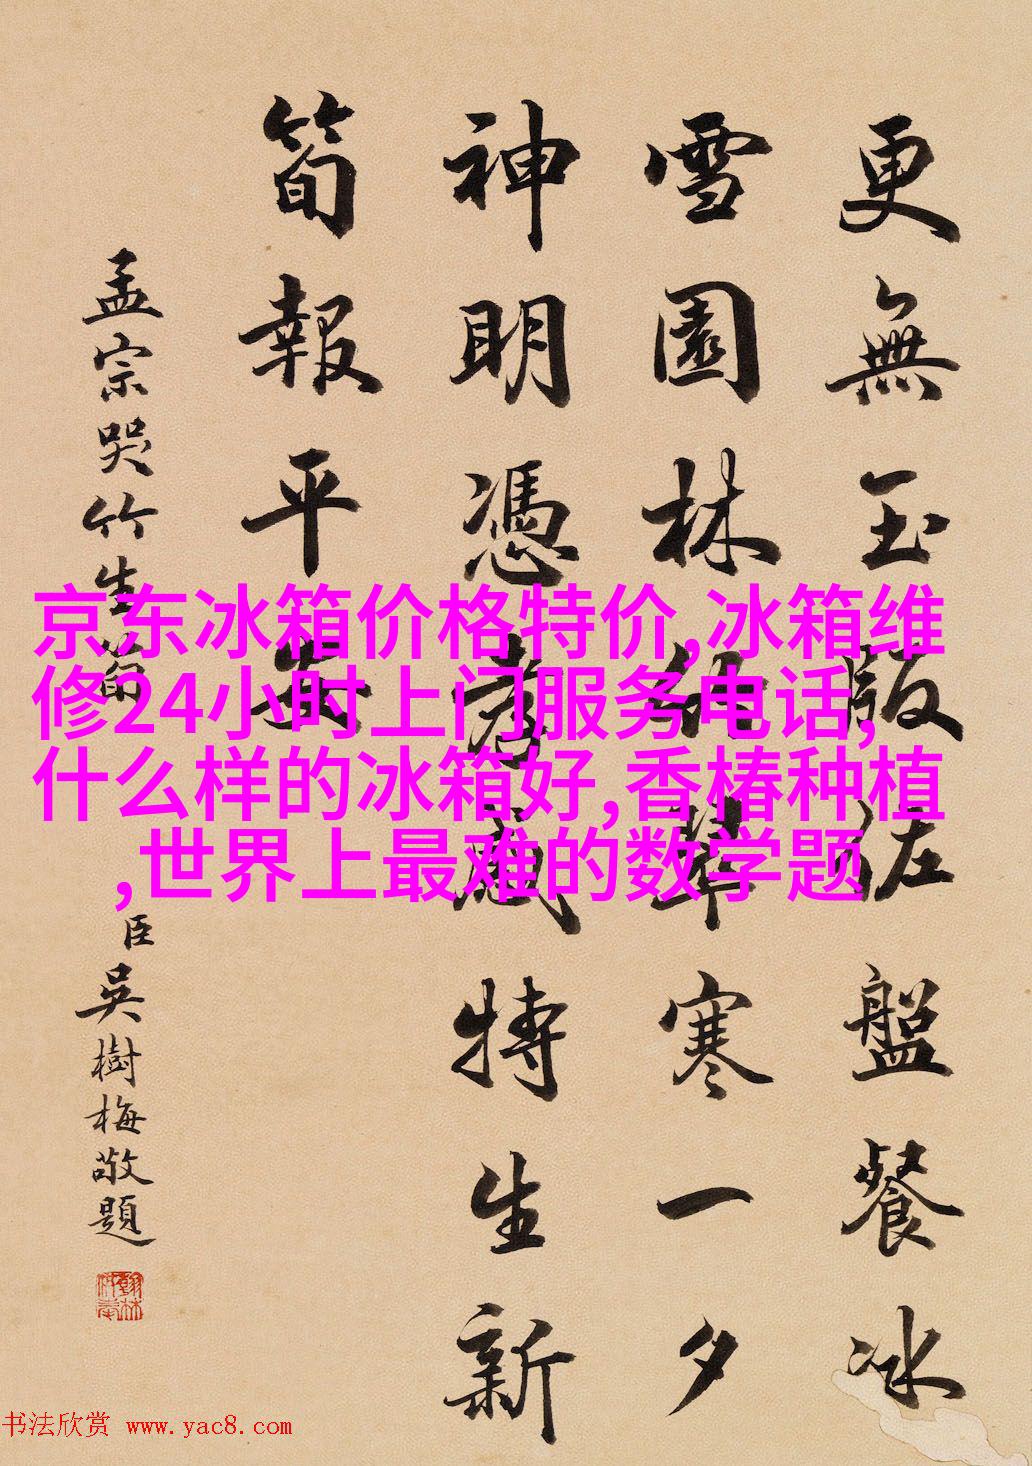 更無玉版佐盤餐冰
雪園林翠寒一夕
神明憑孝感特生新
筍報平安
孟宗哭竹生筍
臣吳樹梅敬題
京东冰箱价格特价,冰箱维
修24小时上门服务电话,
什么样的冰箱好,香椿种植
,世界上最难的数学题
书法欣赏 www.yac8.com